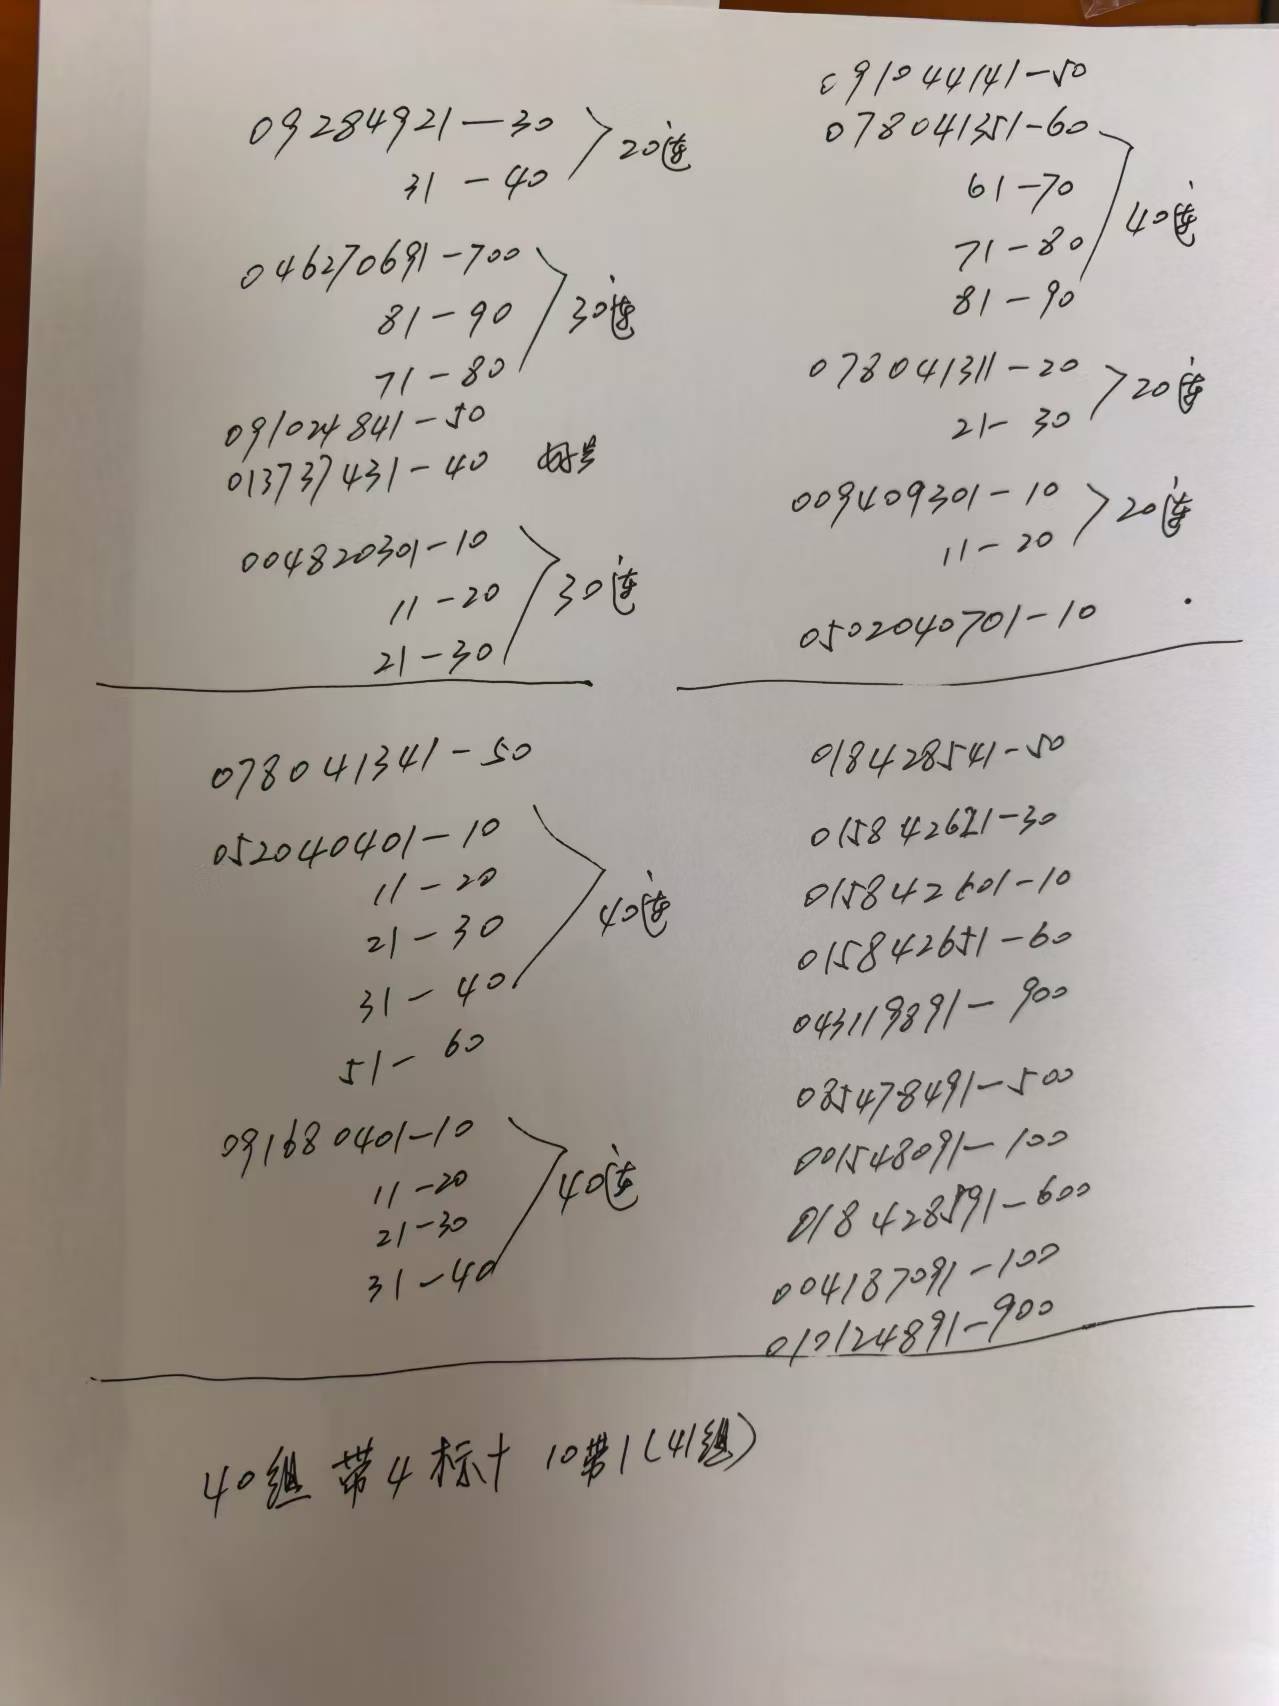 09284921—30
31 - 40
20连
046270691-700
81-90
71-80
30连
091024841-50
013737431-40 好号
004820301-10
11-20
21-30
30连
091044141-50
078041351-60
61-70
71-80
81-90
40连
078041311-20
21-30
20连
009409301-10
11-20
20连
0502040701-10
078041341-50
052040401-10
11-20
21-30
31-40
40连
51-60
091680401-10
11-20
21-30
31-40
40连
018428541-50
015842621-30
015842601-10
015842651-60
043119891-900
085478491-500
001548091-100
018428591-600
004187091-100
010124891-900
40组 带4标十 10带1(41组)